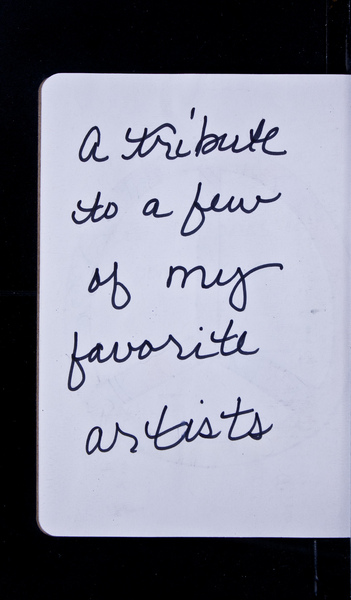 A tribute
to a few
of my
favorite
artists